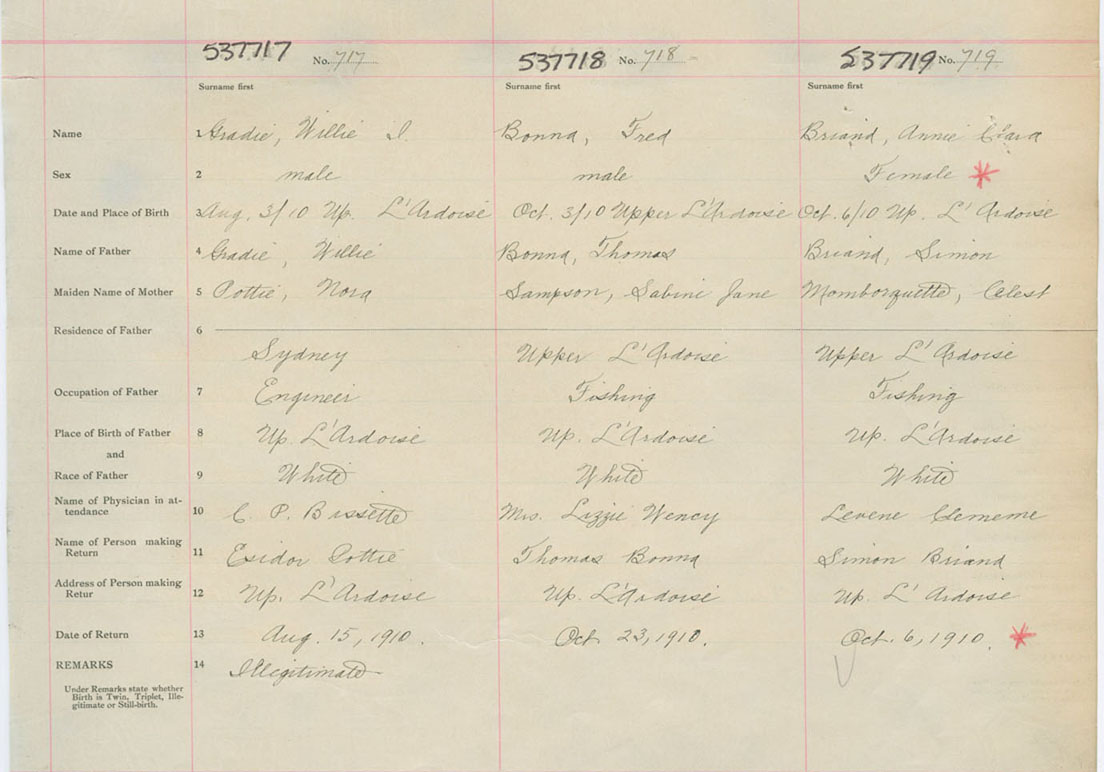 537717 No. 717 537718 No. 718 537719 No. 719
Surname first Surname first Surname first
Name 1 Gradie, Willie D. Bonna, Fred Briand, Annie Clara
Sex 2 male male Female *
Date and Place of Birth 3 Aug. 3/10 Up. L'Ardoise Oct. 3/10 Upper L'Ardoise Oct. 6/10 Up. L'Ardoise
Name of Father 4 Gradie, Willie Bonna, Thomas Briand, Simon
Maiden Name of Mother 5 Pottie, Nora Sampson, Sabine Jane Momborquette, Celest
Residence of Father 6
Sydney Upper L'Ardoise Upper L'Ardoise
Occupation of Father 7 Engineer Fishing Fishing
Place of Birth of Father 8 Up. L'Ardoise Up. L'Ardoise Up. L'Ardoise
and
Race of Father 9 White White White
Name of Physician in at-
tendance 10 C. P. Bissette Mrs. Lizzie Wency Levene Clememe
Name of Person making
Return 11 Esidor Pottie Thomas Bonna Simon Briand
Address of Person making
Retur 12 Up. L'Ardoise Up. L'Ardoise Up. L'Ardoise
Date of Return 13 Aug. 15, 1910. Oct. 23, 1910. Oct. 6, 1910. *
REMARKS 14 Illegitimate
Under Remarks state whether
Birth is Twin, Triplet, Ille-
gitimate or Still-birth.